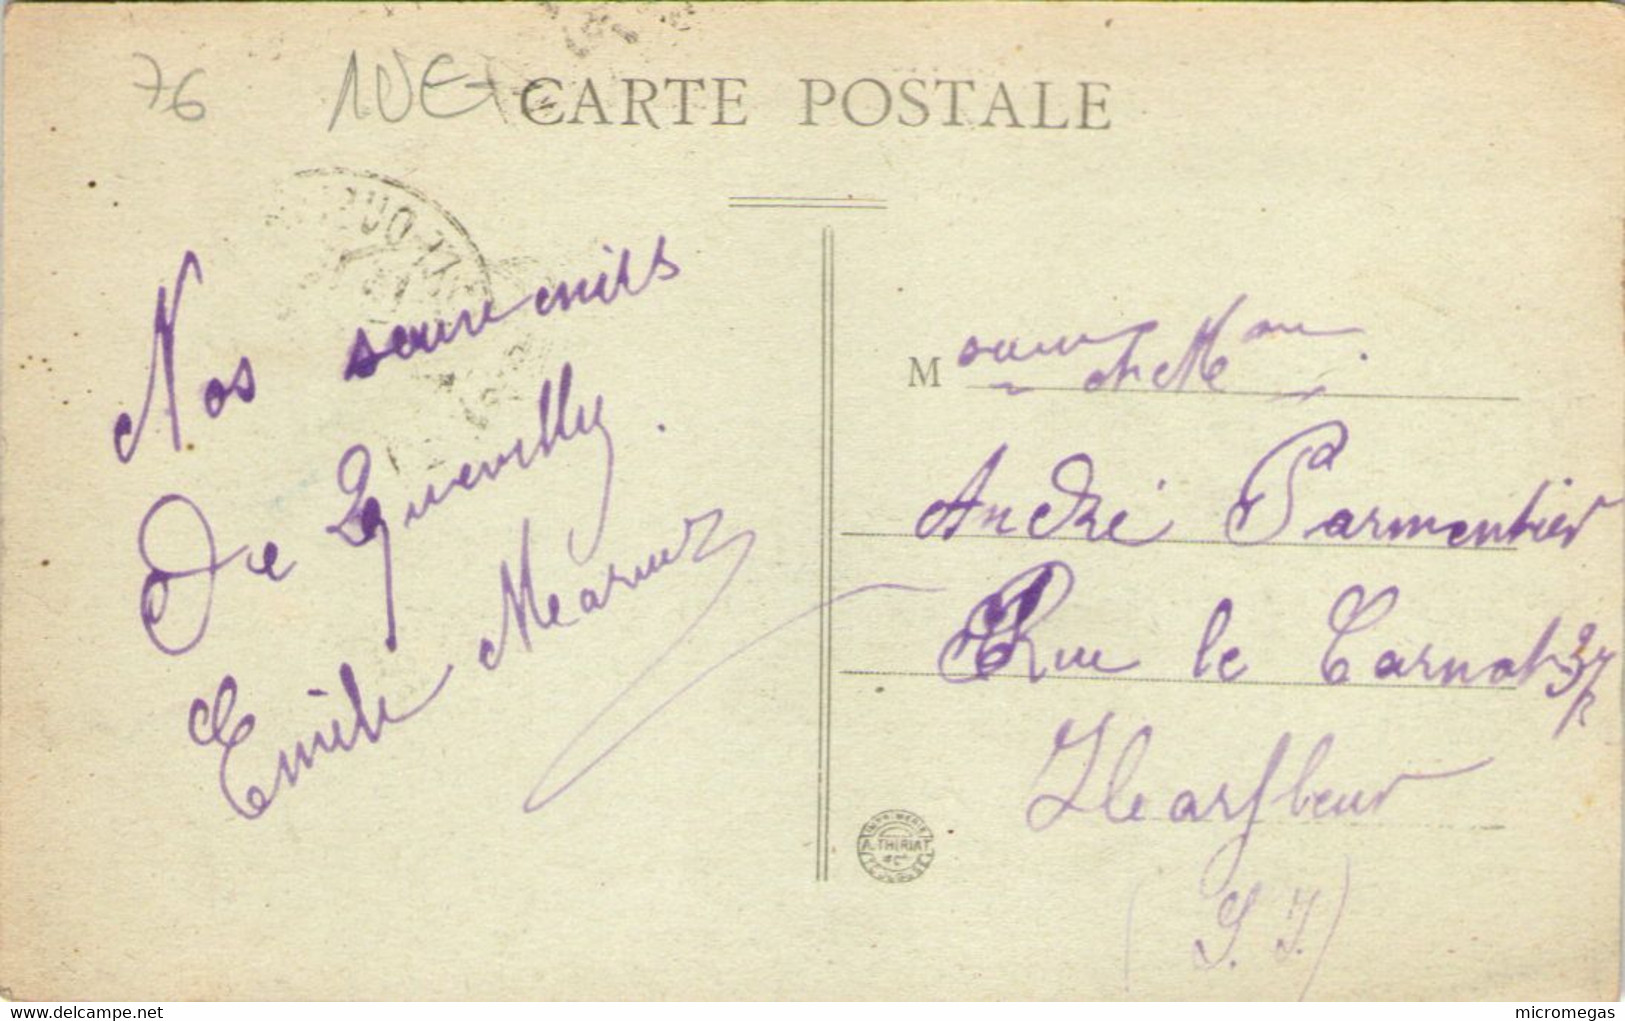 76
CARTE POSTALE
Nos souvenirs
De Quevilly.
Emile
M
et Mme
André Parmentier
Rue le Carnot 37
Harfleur
(S. I.)
IMPRIMERIE
A. THIRIAT
& Cie
TOULOUSE
delcampe.net
micromegas